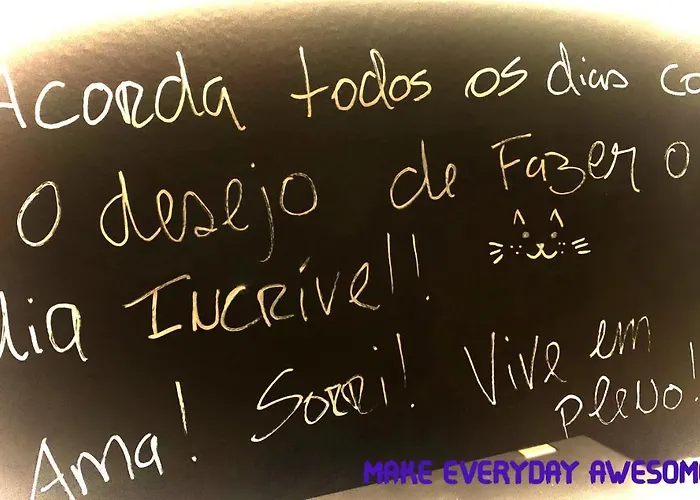 Acorda todos os dias co
o desejo de Fazer o
dia Incrível!
Ama! Sorri! Vive em
pleno!
MAKE EVERYDAY AWESOM